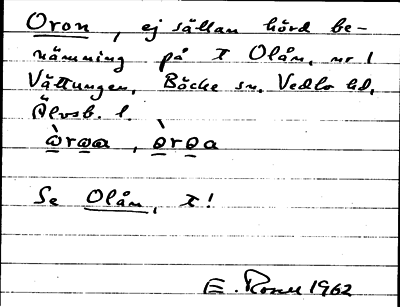 Oron, ej sällan hörd be-
nämning på x Olån, nr 1
Vättungen, Bäcke sn, Vedbo hd,
Älvsb. l.
Se Olån, x!
E. Rosell 1962